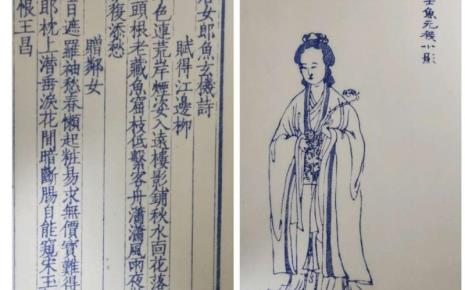 女郎魚玄機詩
賦得江邊柳
色連荒岸煙姿入遠樓影鋪秋水面花落
頭根老藏魚窟枝低繫客舟瀟瀟風雨夜
復添愁
贈鄰女
日遮羅袖愁春懶起粧易求無價寶難得
郎枕上潛垂淚花間暗斷腸自能窺宋玉
恨王昌
士魚元機小影